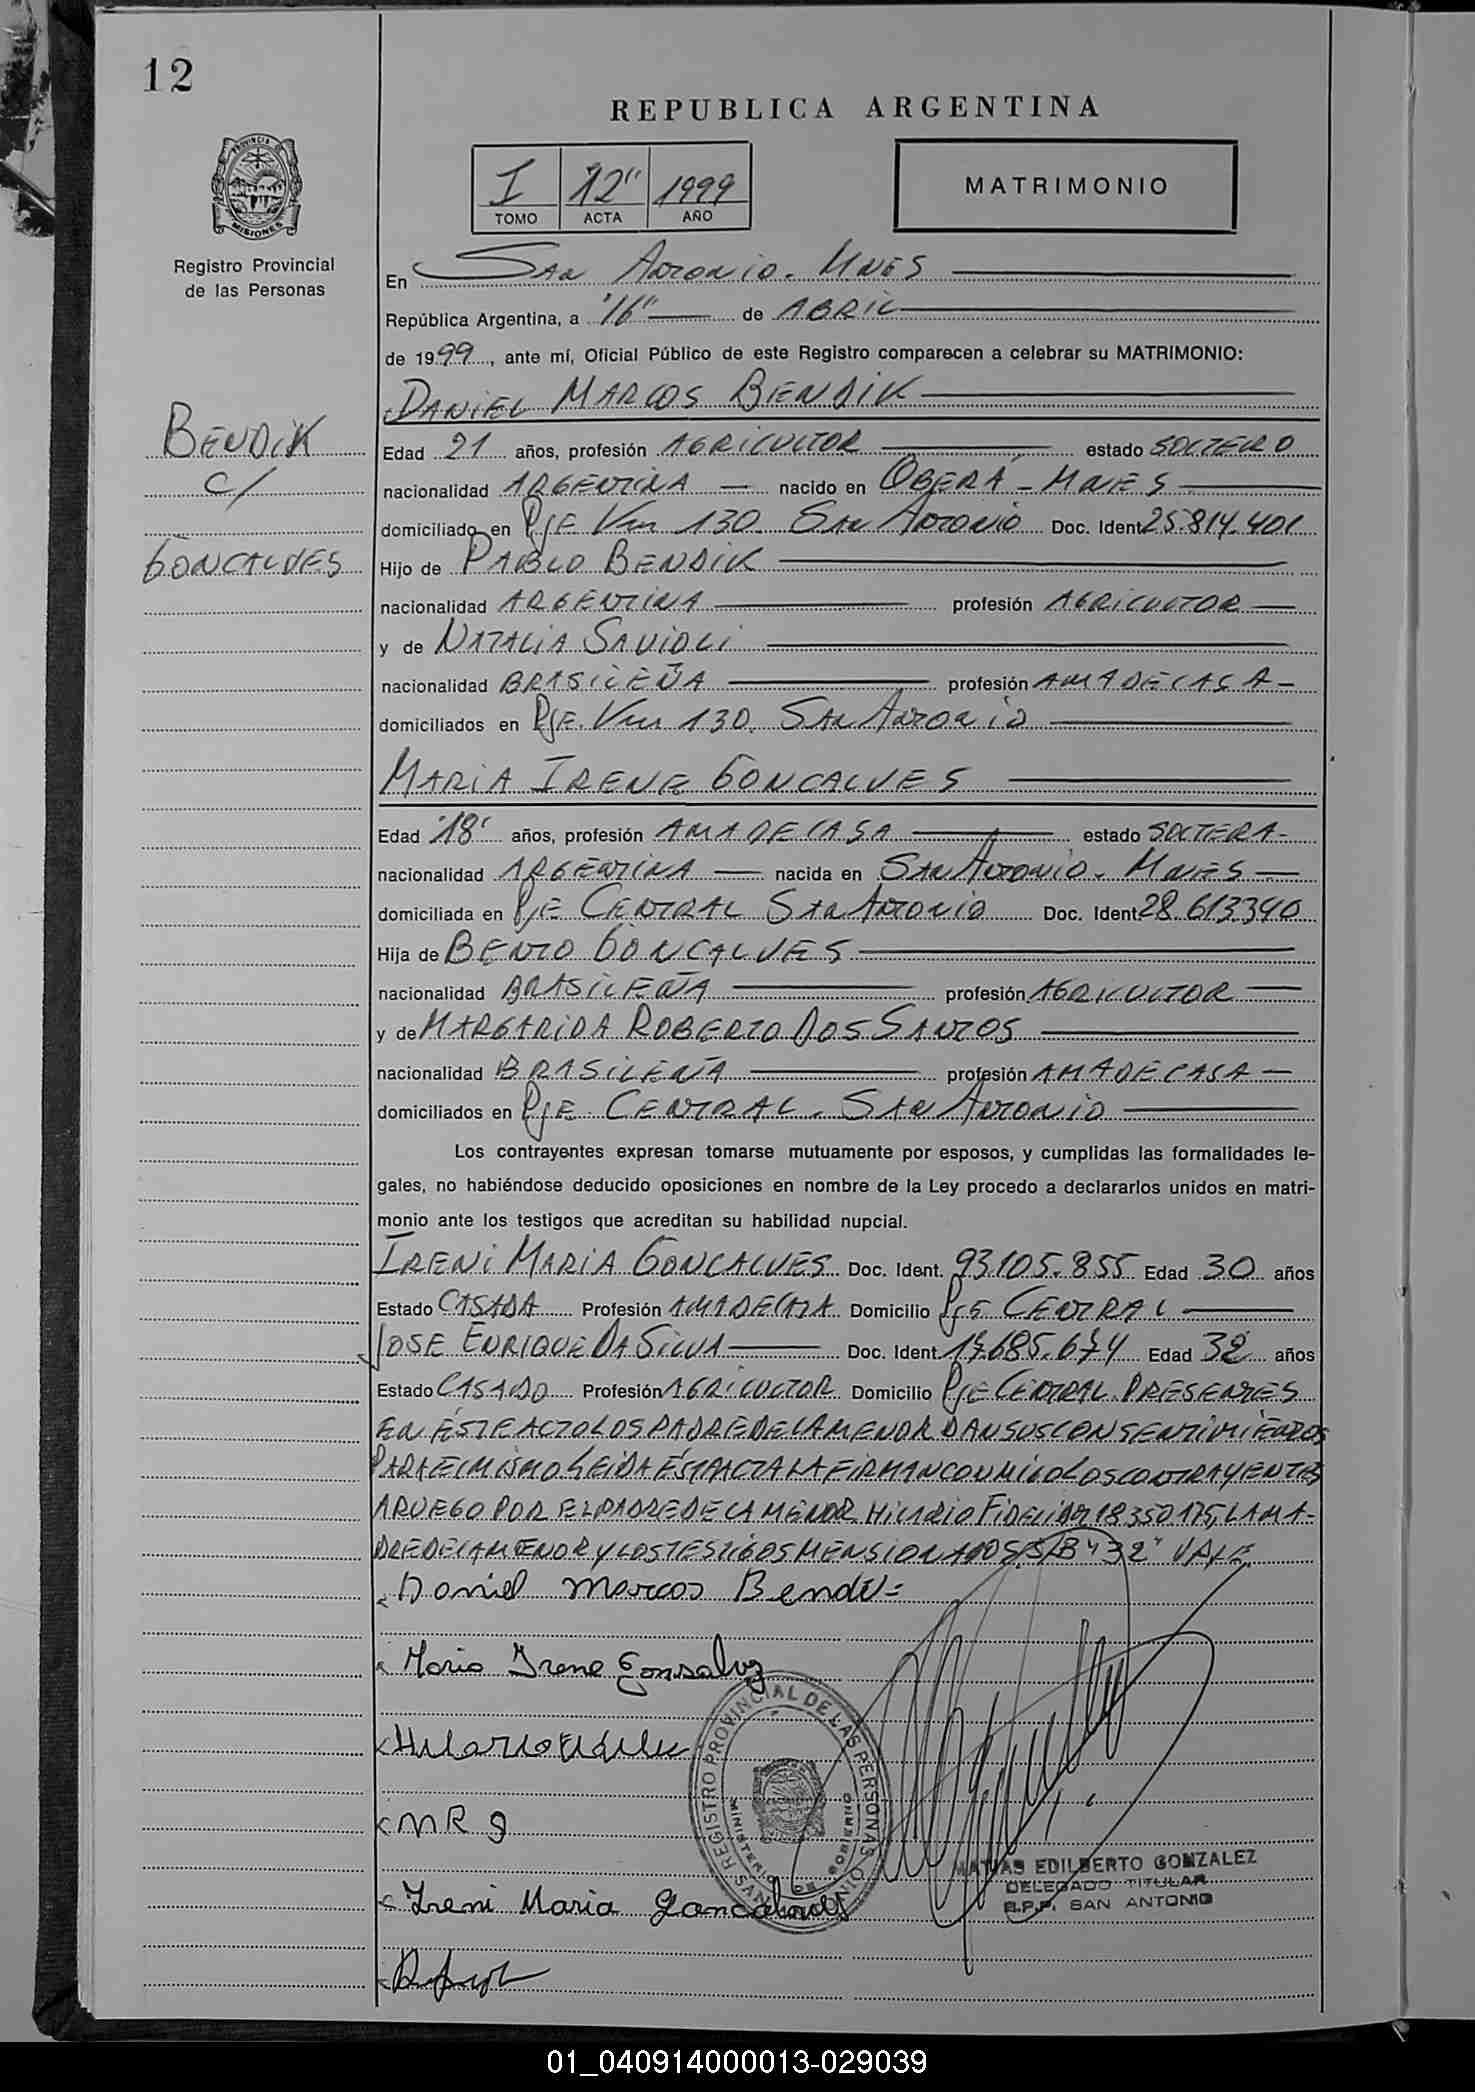 12
REPUBLICA ARGENTINA
PROVINCIA DE
MISIONES
Registro Provincial
de las Personas
I 12" 1999
TOMO ACTA AÑO
MATRIMONIO
En San Antonio. Mnes
República Argentina, a "16" de ABRIL
de 1999, ante mí, Oficial Público de este Registro comparecen a celebrar su MATRIMONIO:
DANIEL MARCOS BENDIK
BENDIK
C/
GONCALVES
Edad 21 años, profesión AGRICULTOR estado SOLTERO
nacionalidad ARGENTINA nacido en OBERÁ - MNES
domiciliado en Pje Km 130 San Antonio Doc. Ident 25.814.401
Hijo de PABLO BENDIK
nacionalidad ARGENTINA profesión AGRICULTOR
y de NATALIA SAVIOLI
nacionalidad BRASILEÑA profesión AMA DE CASA
domiciliados en Pje. Km 130. San Antonio
MARIA IRENE GONCALVES
Edad "18" años, profesión AMA DE CASA estado SOLTERA
nacionalidad ARGENTINA nacida en San Antonio. Mnes
domiciliada en Pje CENTRAL San Antonio Doc. Ident 28.613.340
Hija de BENTO GONCALVES
nacionalidad BRASILEÑA profesión AGRICULTOR
y de MARGARIDA ROBERTO DOS SANTOS
nacionalidad BRASILEÑA profesión AMA DE CASA
domiciliados en Pje. CENTRAL. San Antonio
Los contrayentes expresan tomarse mutuamente por esposos, y cumplidas las formalidades le-
gales, no habiéndose deducido oposiciones en nombre de la Ley procedo a declararlos unidos en matri-
monio ante los testigos que acreditan su habilidad nupcial.
IRENI MARIA GONCALVES Doc. Ident. 93.105.855 Edad 30 años
Estado CASADA Profesión AMA DE CASA Domicilio Pje CENTRAL
JOSE ENRIQUE DA SILVA Doc. Ident. 17.685.674 Edad 32 años
Estado CASADO Profesión AGRICULTOR Domicilio Pje CENTRAL. PRESENTES
EN ÉSTE ACTO LOS PADRE DE LA MENOR DAN SUS CONSENTIMIENTOS
PARA EL MISMO LEIDA ÉSTA ACTA LA FIRMAN CONMIGO LOS CONTRAYENTES
A RUEGO POR EL PADRE DE LA MENOR. HILARIO FIDELI 18.350.175, LA MA-
DRE DE LA MENOR Y LOS TESTIGOS MENSIONADOS S/B "32" VALE.
Daniel Marcos Bendik
Maria Irene Gonsalvez
M R S
Ireni Maria Goncalves
REGISTRO PROVINCIAL DE LAS PERSONAS
MINISTERIO DE GOBIERNO
SAN ANTONIO
MATIAS EDILBERTO GONZALEZ
DELEGADO TITULAR
R.P.P. SAN ANTONIO
01_040914000013-029039